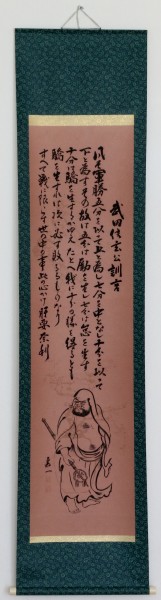 武田信玄公訓言
凡そ軍勝五分を以て上と為し七分を中となし十分を以て
下と為す其の故は五分は励を生じ七分は怠を生ず
十分は驕を生ずるが故たとへ戦に十分の勝を得るとも
驕を生ずれば次には必ず敗るるものなり
すべて戦に限らず世の中の事此の心がけ肝要奈利